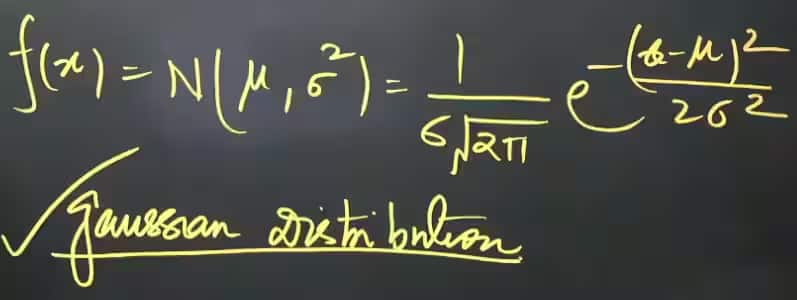 f(x) = N(μ, σ²) = 1/(σ√2π) e^(-(x-μ)²/2σ²)
Gaussian Distribution